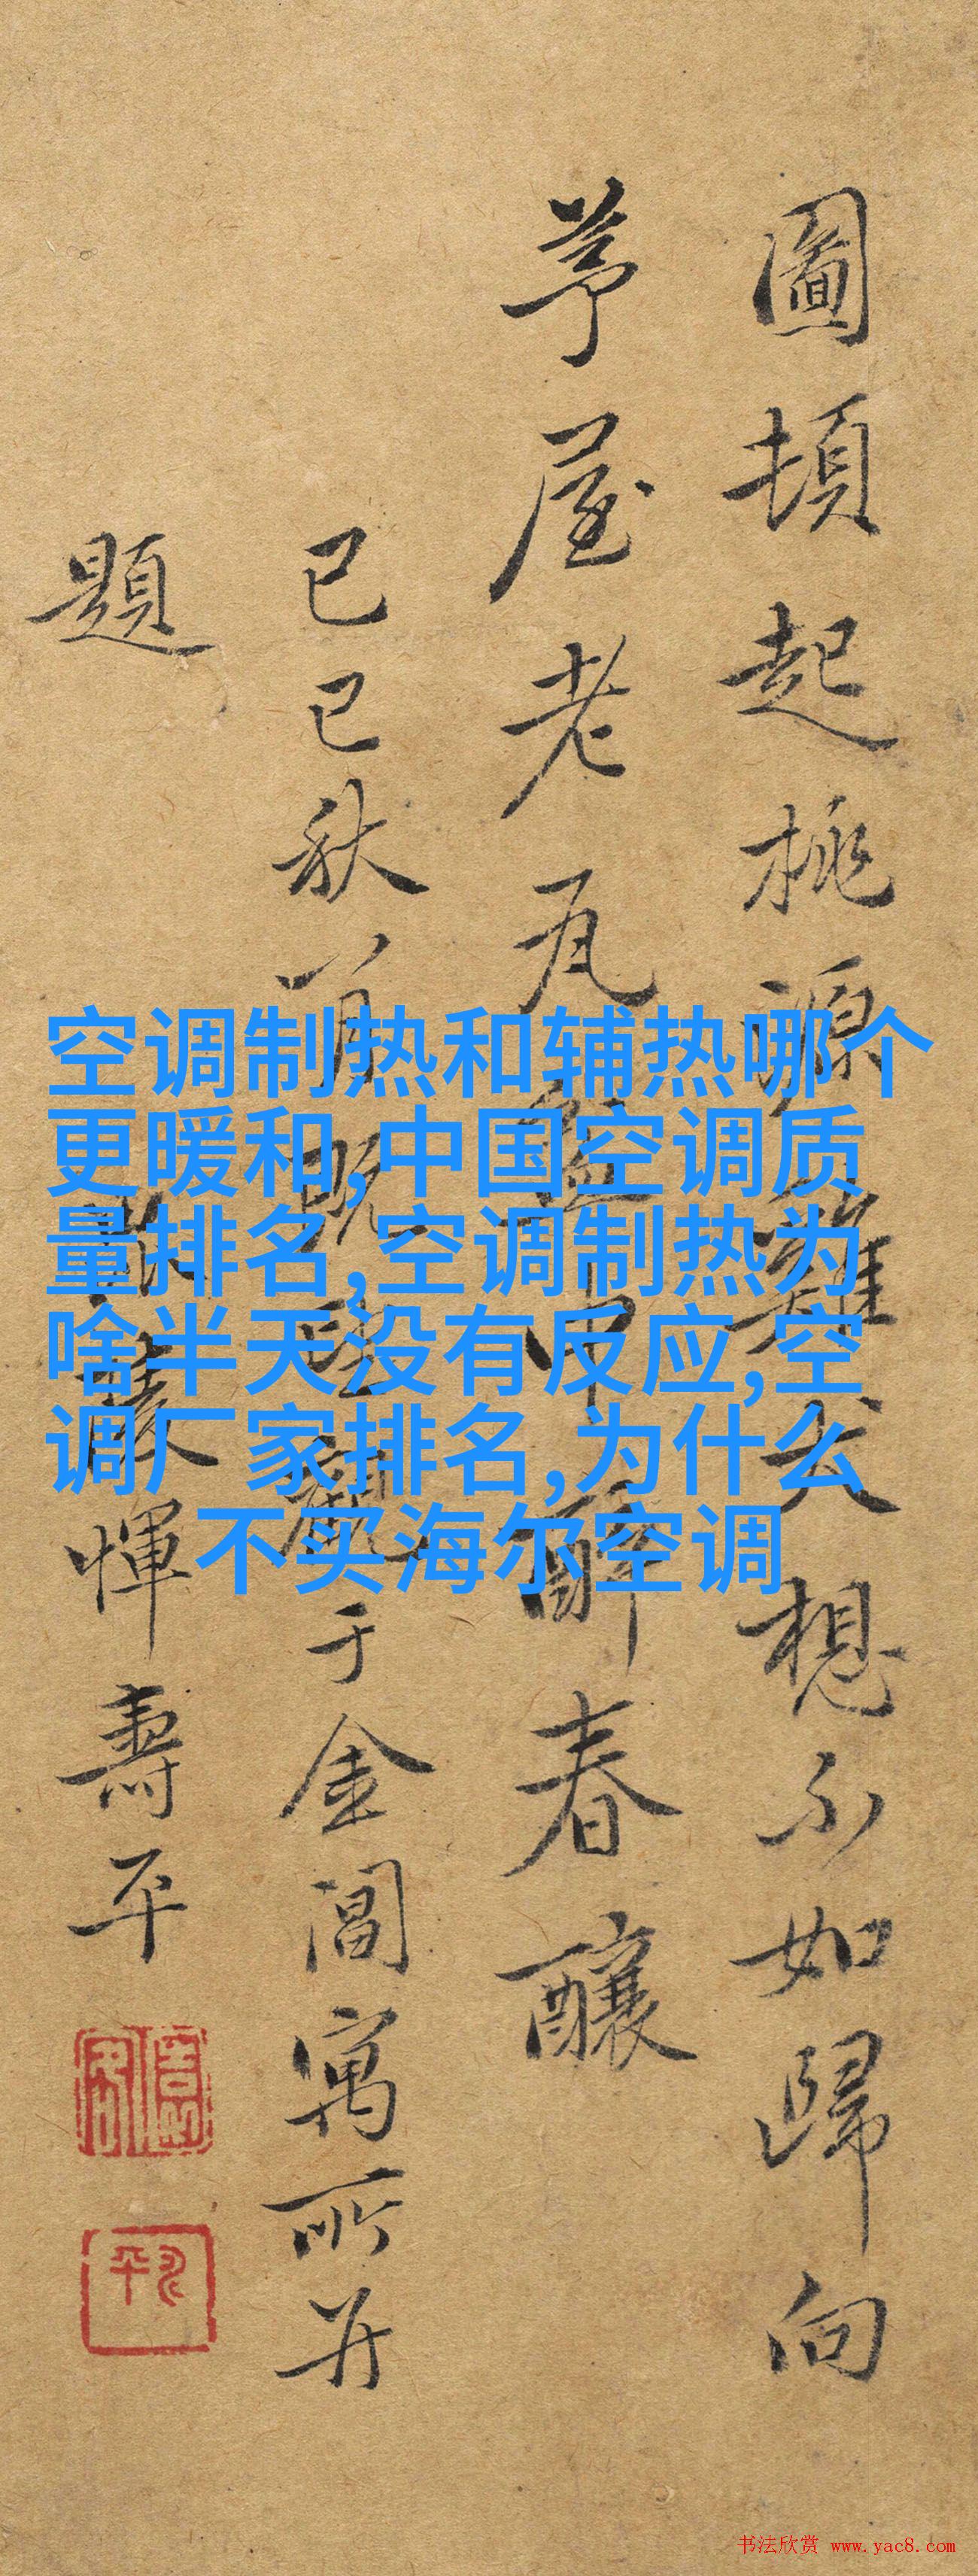 圖頓起桃源雞犬想不如歸向
茅屋老瓦盆中醉春釀
己巳秋八月既望觀于金閶寓所并
題
壽平
空调制热和辅热哪个
更暖和,中国空调质
量排名,空调制热为
啥半天没有反应,空
调厂家排名,为什么
不买海尔空调
书法欣赏 www.yac8.com